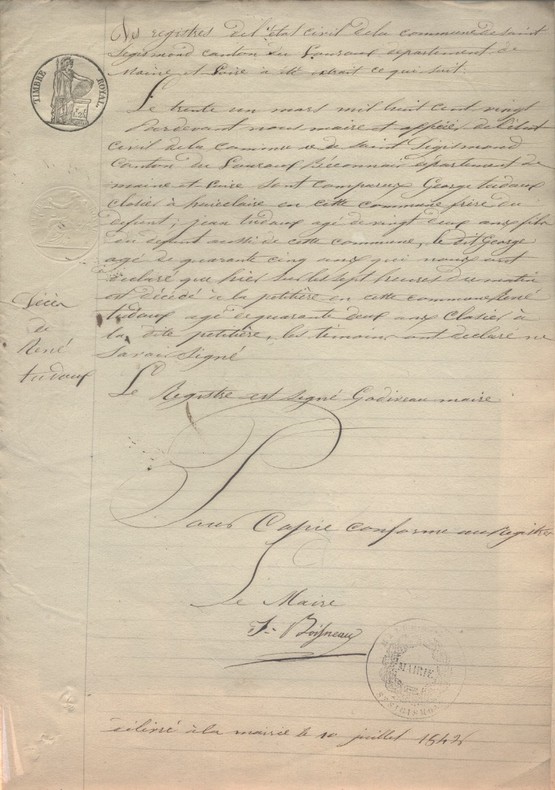 Des registres de l'état civil de la commune de Saint
Segismond canton du Louroux departement de
Maine et Loire à été extrait ce qui suit.
TIMBRE ROYAL
Le trente un mars mil huit cent vingt
Pardevant nous maire et officier de l'état
Civil de la commune de Saint Segismond
Canton du Louroux Béconnais departement de
maine et Loire sont comparus George tudoux
Closier à en cette commune frère du
defunt; jean tudoux agé de vingt deux ans fils
du defunt aussi de cette commune, le dit George
agé de quarante cinq ans qui nous ont
declaré que hier sur les sept heures du matin
est décédé à la petitière en cette commune René
tudoux agé de quarante deux ans Closier à
la dite petitière, les temoins ont declaré ne
Savoir Signé
Décès
de
René
tudoux
Le Registre est signé Godiveau maire
Pour Copie conforme au Registre
Le Maire
F. Boisneau
MAIRIE
délivré à la mairie le 10 juillet 1842